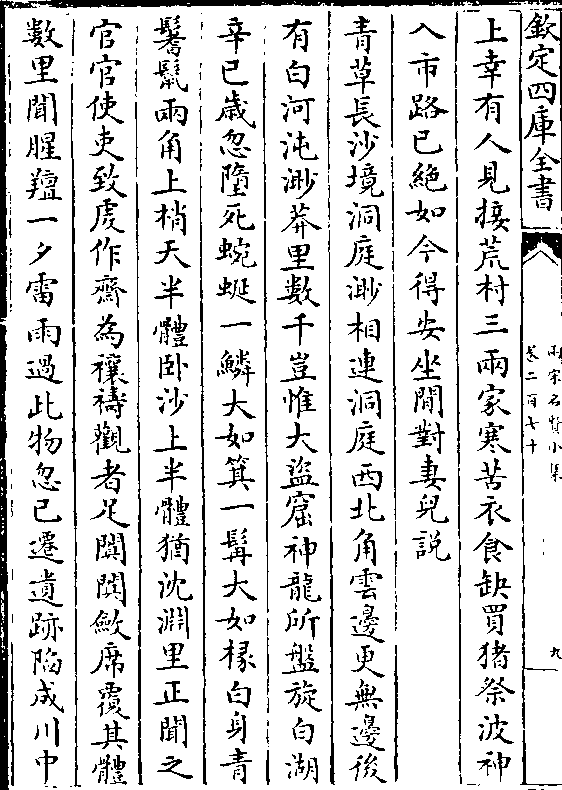 欽定四庫全書
兩宋名賢小集
卷二百七十
九
上幸有人見接荒村三兩家寒苦衣食缺買猪祭波神
入市路已絶如今得安坐閒對妻兒説
青草長沙境洞庭渺相連洞庭西北角雲邊更無邊後
有白河沌渺莽里數千豈惟大盜窟神龍所盤旋白湖
辛已歳忽墮死蜿蜒一鱗大如箕一髯大如椽白身青
鬐鬛兩角上梢天半體卧沙上半體猶沈淵里正聞之
官官使吏致䖍作齋為禳禱觀者足闐闐斂席覆其體
數里聞腥羶一夕雷雨過此物忽已遷遺跡陷成川中